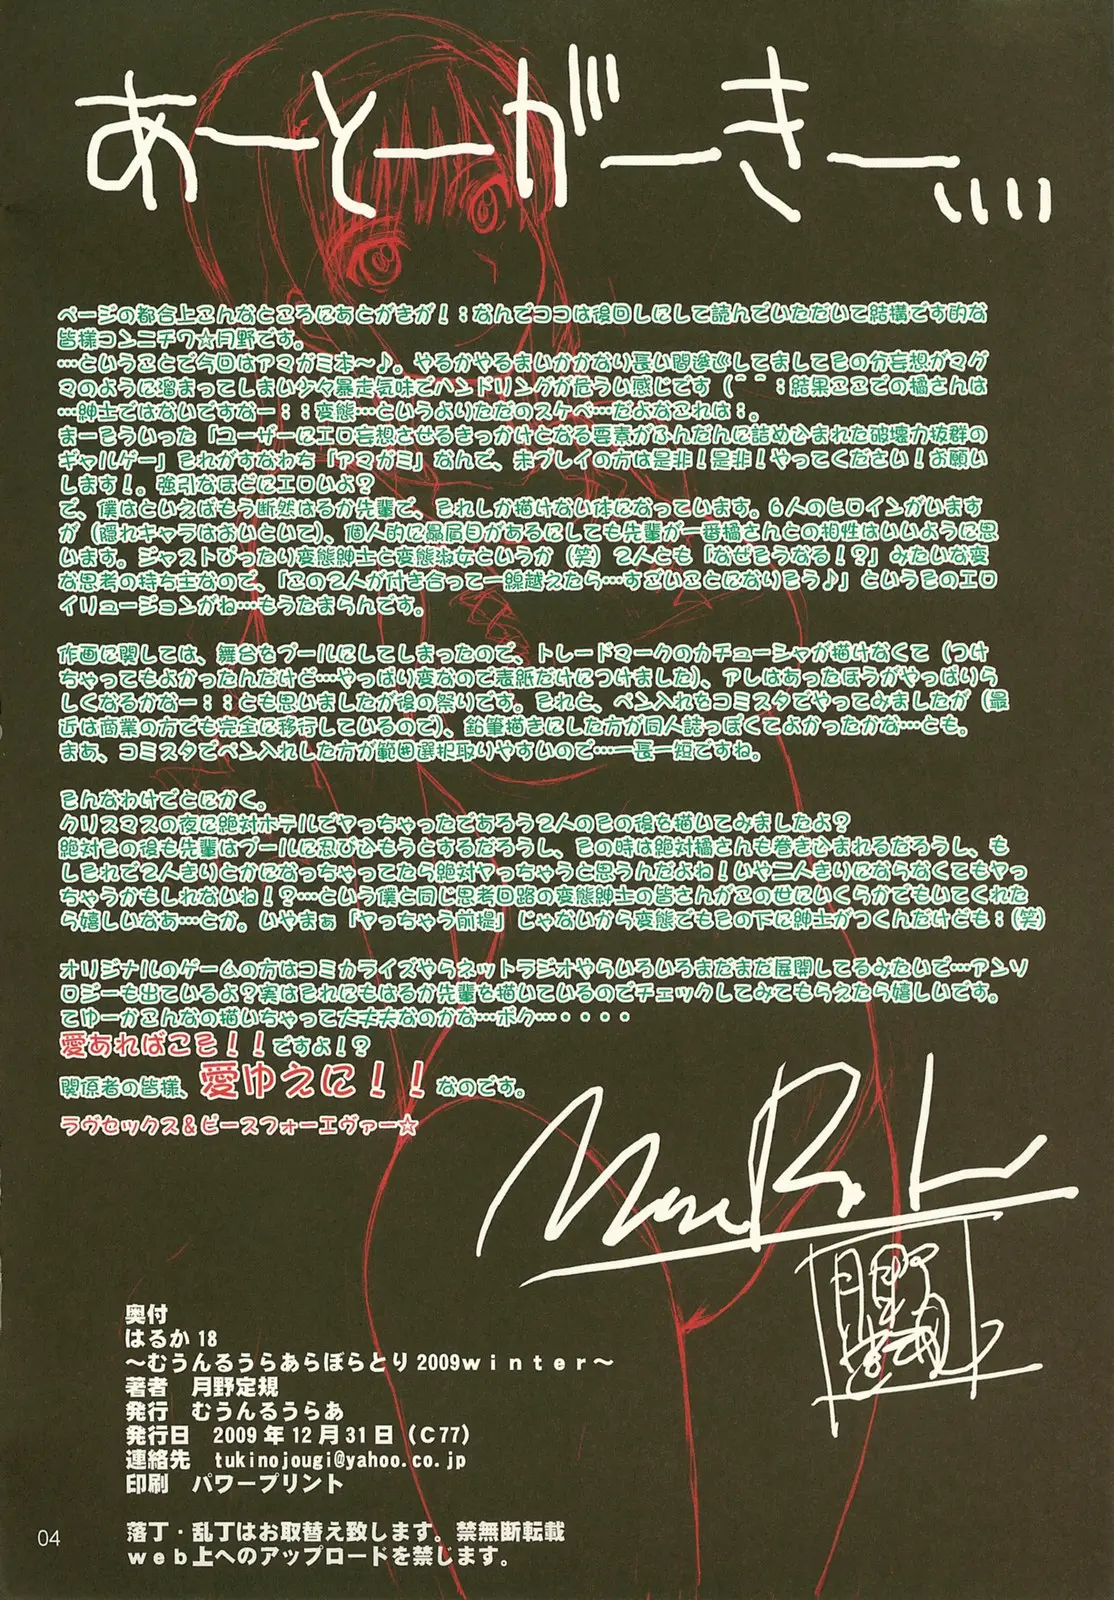 あーとーがーきー、、、、
ページの都合上こんなところにあとがきが！；なんでココは後回しにして読んでいただいて結構です的な
皆様コンニチワ☆月野です。
…ということで今回はアマガミ本～♪。やるかやるまいかかなり長い間逡巡してましてその分妄想がマグ
マのように溜まってしまい少々暴走気味でハンドリングが危うい感じです（＾＾；結果ここでの橘さんは
…紳士ではないですなー；；変態…というよりただのスケベ…だよなこれは；。
まーそういった「ユーザーにエロ妄想させるきっかけとなる要素がふんだんに詰め込まれた破壊力抜群の
ギャルゲー」それがすなわち「アマガミ」なんで、未プレイの方は是非！是非！やってください！お願い
します！。強引なほどにエロいよ？
で、僕はといえばもう断然はるか先輩で、それしか描けない体になっています。6人のヒロインがいます
が（隠れキャラはおいといて）、個人的に贔屓目があるにしても先輩が一番橘さんとの相性はいいように思
います。ジャストぴったり変態紳士と変態淑女というか（笑）2人とも「なぜそうなる！？」みたいな変
な思考の持ち主なので、「この2人が付き合って一線越えたら…すごいことになりそう♪」というそのエロ
イリュージョンがね…もうたまらんです。

作画に関しては、舞台をプールにしてしまったので、トレードマークのカチューシャが描けなくて（つけ
ちゃってもよかったんだけど…やっぱり変なので表紙だけにつけました）、アレはあったほうがやっぱりら
しくなるかなー；；とも思いましたが後の祭りです。それと、ペン入れをコミスタでやってみましたが（最
近は商業の方でも完全に移行しているので）、鉛筆描きにした方が同人誌っぽくてよかったかな…とも。
まあ、コミスタでペン入れした方が範囲選択取りやすいので…一長一短ですね。

そんなわけでとにかく。
クリスマスの夜に絶対ホテルでヤっちゃったであろう2人のその後を描いてみましたよ？
絶対その後も先輩はプールに忍び込もうとするだろうし、その時は絶対橘さんも巻き込まれるだろうし、も
しそれで2人きりとかになっちゃってたら絶対ヤっちゃうと思うんだよね！いや二人きりにならなくてもヤっ
ちゃうかもしれないね！？…という僕と同じ思考回路の変態紳士の皆さんがこの世にいくらかでもいてくれた
ら嬉しいなあ…とか。いやまぁ「ヤっちゃう前提」じゃないから変態でもその下に紳士がつくんだけども；（笑）

オリジナルのゲームの方はコミカライズやらネットラジオやらいろいろまだまだ展開してるみたいで…アンソ
ロジーも出ているよ？実はそれにもはるか先輩を描いているのでチェックしてみてもらえたら嬉しいです。
てゆーかこんなの描いちゃって大丈夫なのかな…ボク…・・・・
愛あればこそ！！ですよ！？
関係者の皆様、愛ゆえに！！なのです。
ラヴセックス＆ピースフォーエヴァー☆
奥付
はるか18
～むうんるうらあらぼらとり2009winter～
著者　月野定規
発行　むうんるうらあ
発行日　2009年12月31日（C77）
連絡先　tukinojougi@yahoo.co.jp
印刷　パワープリント
落丁・乱丁はお取替え致します。禁無断転載
web上へのアップロードを禁じます。
04